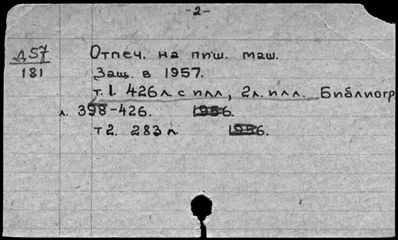 -2-
Д57
181
Отпеч. на пиш. маш.
Защ. в 1957.
т.1. 426 л. с илл., 2 л. илл. Библиогр
л. 398-426. 1956.
т2. 283 л. 1956.